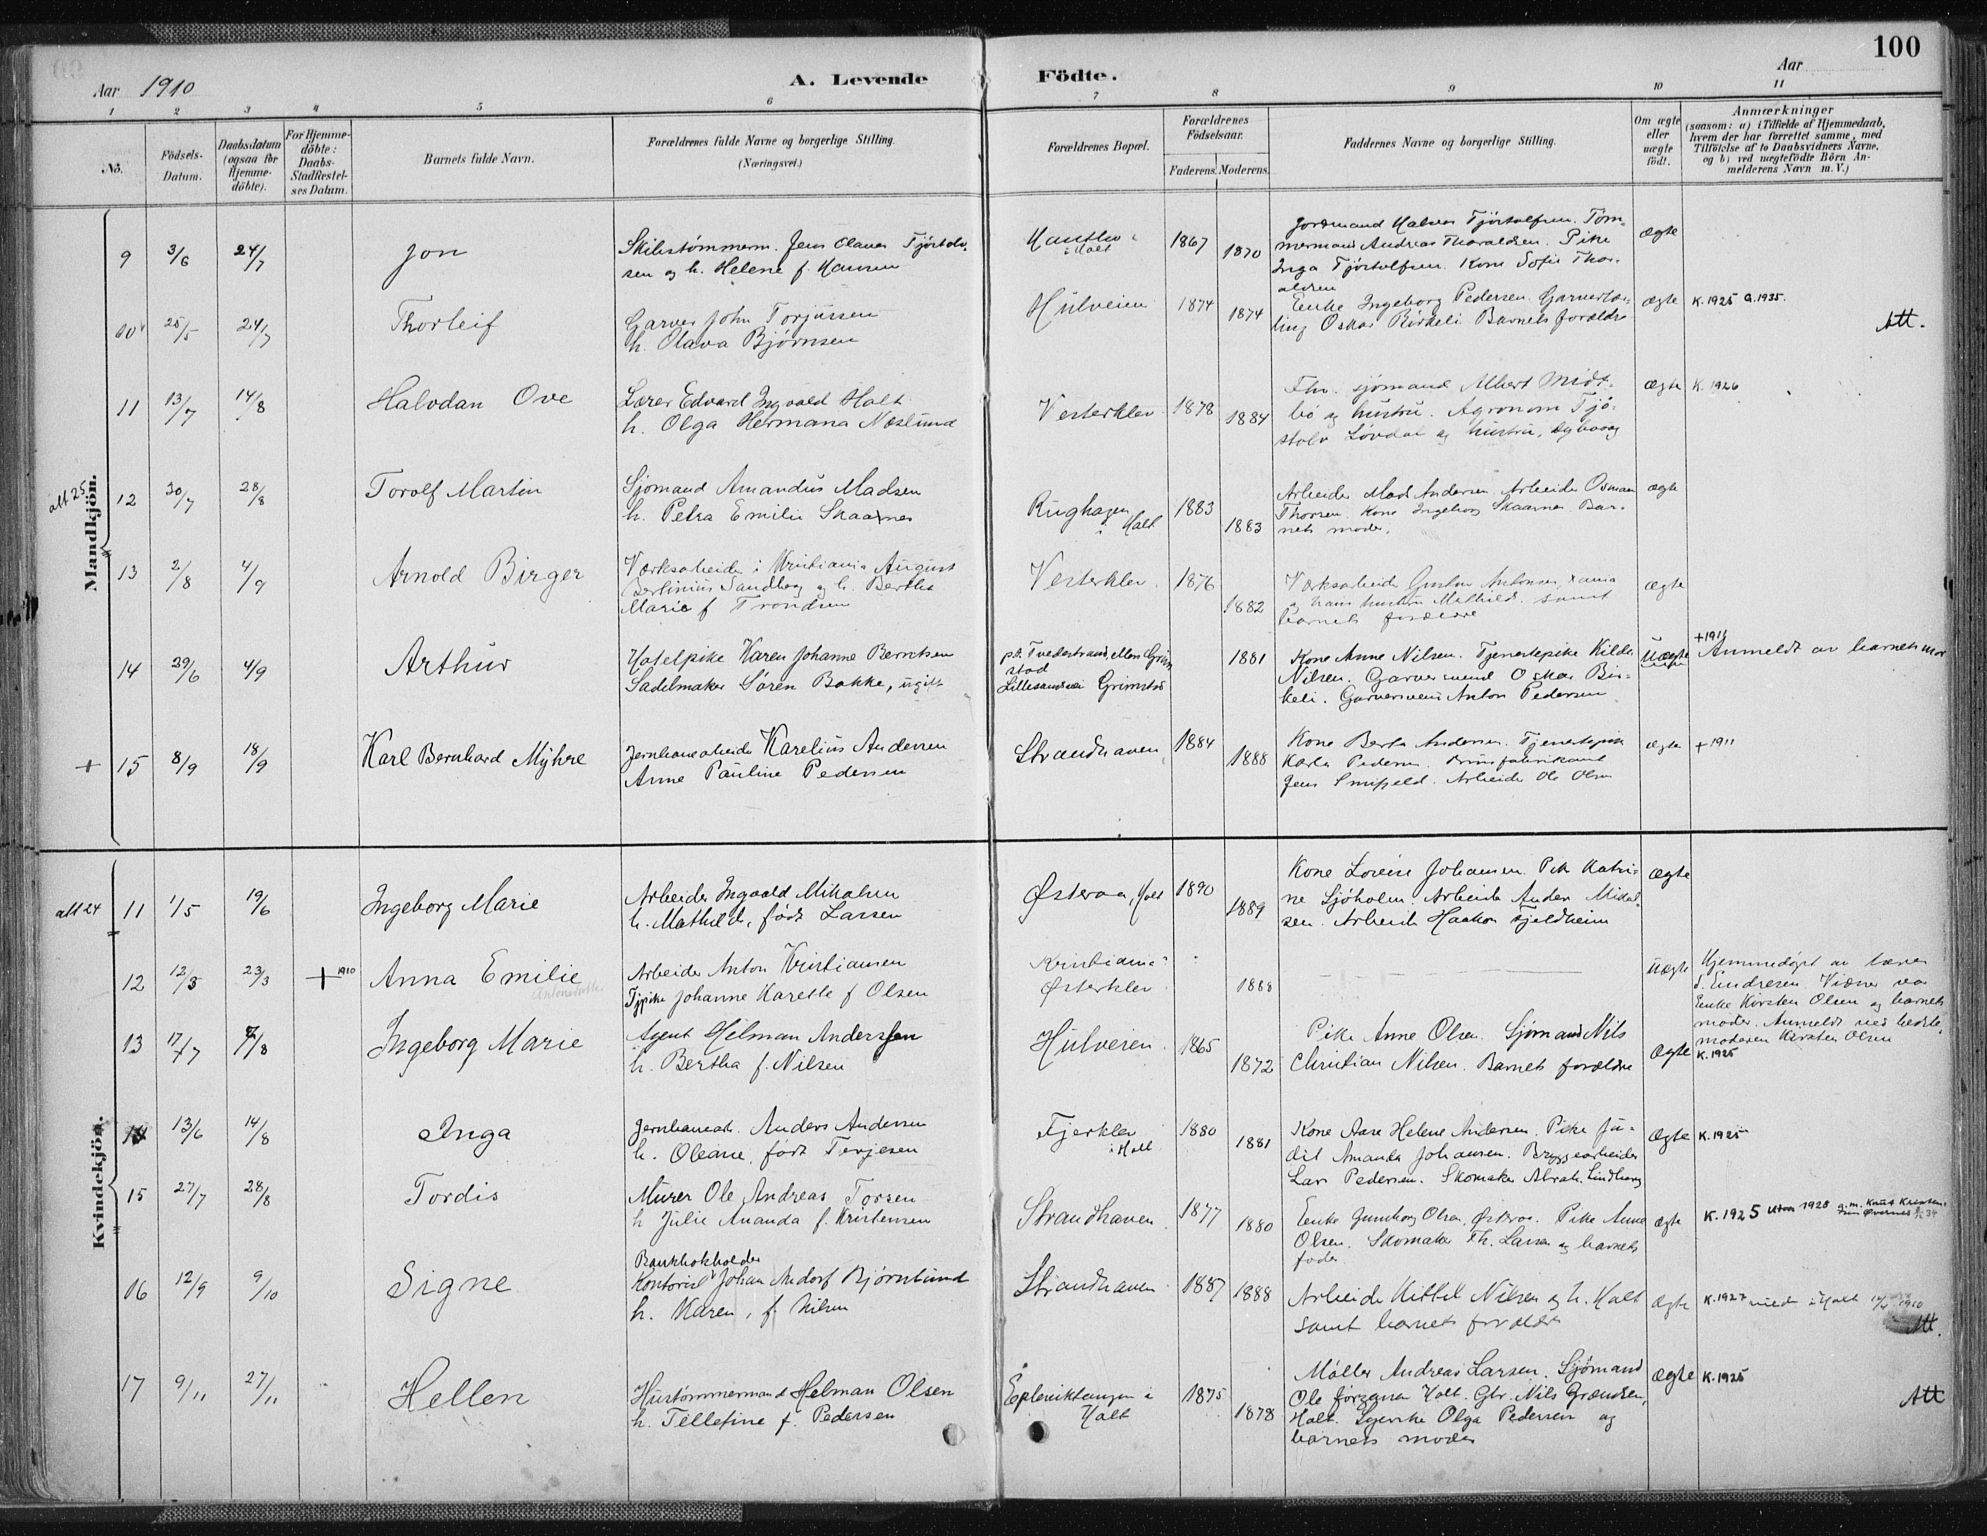 100
Aar 1910
A. Levende Födte.
Aar
1 2 3 4 5 6 7 8 9 10 11
No.
Födsels-Datum.
Daabsdatum (ogsaa for Hjemme-döbte).
For Hjemme-döbte: Daabs-Stadfæstel-ses Datum.
Barnets fulde Navn.
Forældrenes fulde Navne og borgerlige Stilling.
(Næringsvei.)
Forældrenes Bopæl.
Forældrenes Födselsaar.
Faderens. Moderens.
Faddernes Navne og borgerlige Stilling.
Om ægte eller uægte födt.
Anmærkninger
(saasom: a) i Tilfælde af Hjemmedaab, hvem der har forrettet samme, med Tilföielse af to Daabsvidners Navne, og b) ved uægtefödte Börn An-melderens Navn m. V.)
Mandkjön.
att 25
9 3/6 24/7 Jon
Skibstømmerm. Jens Olaves Tjörtolv
sen og h. Helene f. Hansen
i Holt
1867 1870
Tjörtolfsen. Töm-
mermand Andreas Thoraldsen. Pike
Inga Tjörtolfsen. Kone Sofie Thor-
aldsen
ægte
10 25/5 24/7 Thorleif
Garver John Torjussen
h. Olava Bjørnsen
Hulveien 1874 1874
Enke Ingeborg Pedersen. Garverlær-
ling Oskar Birkeli. Barnets forældre
ægte K. 1925 G. 1935.
Att.
11 13/7 14/8 Halvdan Ove
Lærer Edvard Ingvald Holt
h. Olga Hermana Næslund
Vesterklev 1878 1884
Fhv. sjömand Albert Midt-
bö og hustru. Agronom Tjö-
stolv Løvdal og hustru, Dybvaag
ægte K. 1926
12 30/7 28/8 Torolf Martin
Sjömand Amandus Madsen
h. Petra Emilie Skaarnes
Rughagen i Holt 1883 1883
Arbeider Mads Andersen Arbeider Osman
Thorsen. Kone Ingeborg Skaarnes Bar-
nets moder.
ægte
13 2/8 4/9 Arnold Birger
Værksarbeider i Kristiania August
Bertinius Sandberg og h. Bertha
Marie f Trondsen
Vesterklev 1876 1882
Værksarbeider Gustav Antonsen, Xania
og hans hustru Mathilde. samt
barnets forældre
ægte
14 29/6 4/9 Arthur
Hotelpike Karen Johanne Berntsen
Sadelmaker Søren Bakke, ugift
p.t. Tvedestrand, ellers Grim
stad
Lillesandsvei Grimstad
1881
Kone Anne Nilsen. Tjenestepike Hilda
Nilsen. Garversvend Oskar Bir-
keli. Garversvend Anton Pedersen
Uægte
+ 1911
Anmeldt av barnets mor
+ 15 8/9 18/9 Karl Bernhard Myhre
Jernbanearbeider Karelius Andersen
Anne Pauline Pedersen
Strandhaven 1884 1888
Kone Berta Andersen. Tjenestepike
Karla Pedersen. Brusfabrikant
Jens Smifjeld. Arbeider Ole Olsen
ægte + 1911
Kvindekjön.
att 24
11 1/5 19/6 Ingeborg Marie
Arbeider Ingvald Mikalsen
h. Mathilde, födt Larsen
Østeraa, Holt 1890 1889
Kone Lovise Johansen Pike Katri-
ne Sjöholm. Arbeider Anders Mikal-
sen. Arbeider Haakon Fjeldheim
ægte
12 12/3 23/3 + 1910 Anna Emilie
Arbeider Anton Kristiansen
Tjpike Johanne Karette f Olsen
Kristiania
Østerklev 1888
Uægte
Hjemmedøpt av lærer
S. Endresen. Vidner var
Enke Kirsten Olsen og barnets
moder. Anmeldt ved bedste-
moderen Kirsten Olsen
13 17/7 7/8 Ingeborg Marie
Agent Helman Anderssen
h. Bertha f. Nilsen
Hulveien 1865 1872
Pike Anne Olsen. Sjømand Nils
Christian Nilsen. Barnets forældre
ægte K. 1925
14 13/6 14/8 Inga
Jernbanearb. Anders Andersen
h. Oleane, født Terjesen
Fjerklev
i Holt
1880 1881
Kone Aase Helene Andersen. Pike Ju-
dit Amanda Johansen. Bryggearbeider
Lars Pedersen. Skomaker Abrah. Lindberg
ægte K. 1925
15 27/7 28/8 Tordis
Murer Ole Andreas Torsen
h Julie Amanda f. Kristensen
Strandhaven 1877 1880
Enke Gunnborg Olsen, Østeraa. Pike Anne
Olsen. Skomaker Th. Larsen og barnets
fader
ægte K. 1925
16 12/9 9/10 Signe
Bankbokholder
Kontorist Johan Andorf Bjørnlund
h. Karen, f. Nilsen
Strandhaven 1887 1888
Arbeider Kittel Nilsen og h. Holt
samt barnets forældre
ægte K. 1927 viet i Holt 1910
Att.
17 9/11 27/11 Hellen
Hustømmermand Helman Olsen
h. Tellefine f. Pedersen
Holt 1875 1878
Møller Andreas Larsen. Sjømand
Ole Holt. Gbr. Nils Grændsen,
Holt. Syerske Olga Pedersen og
barnets moder
ægte K. 1925
Att